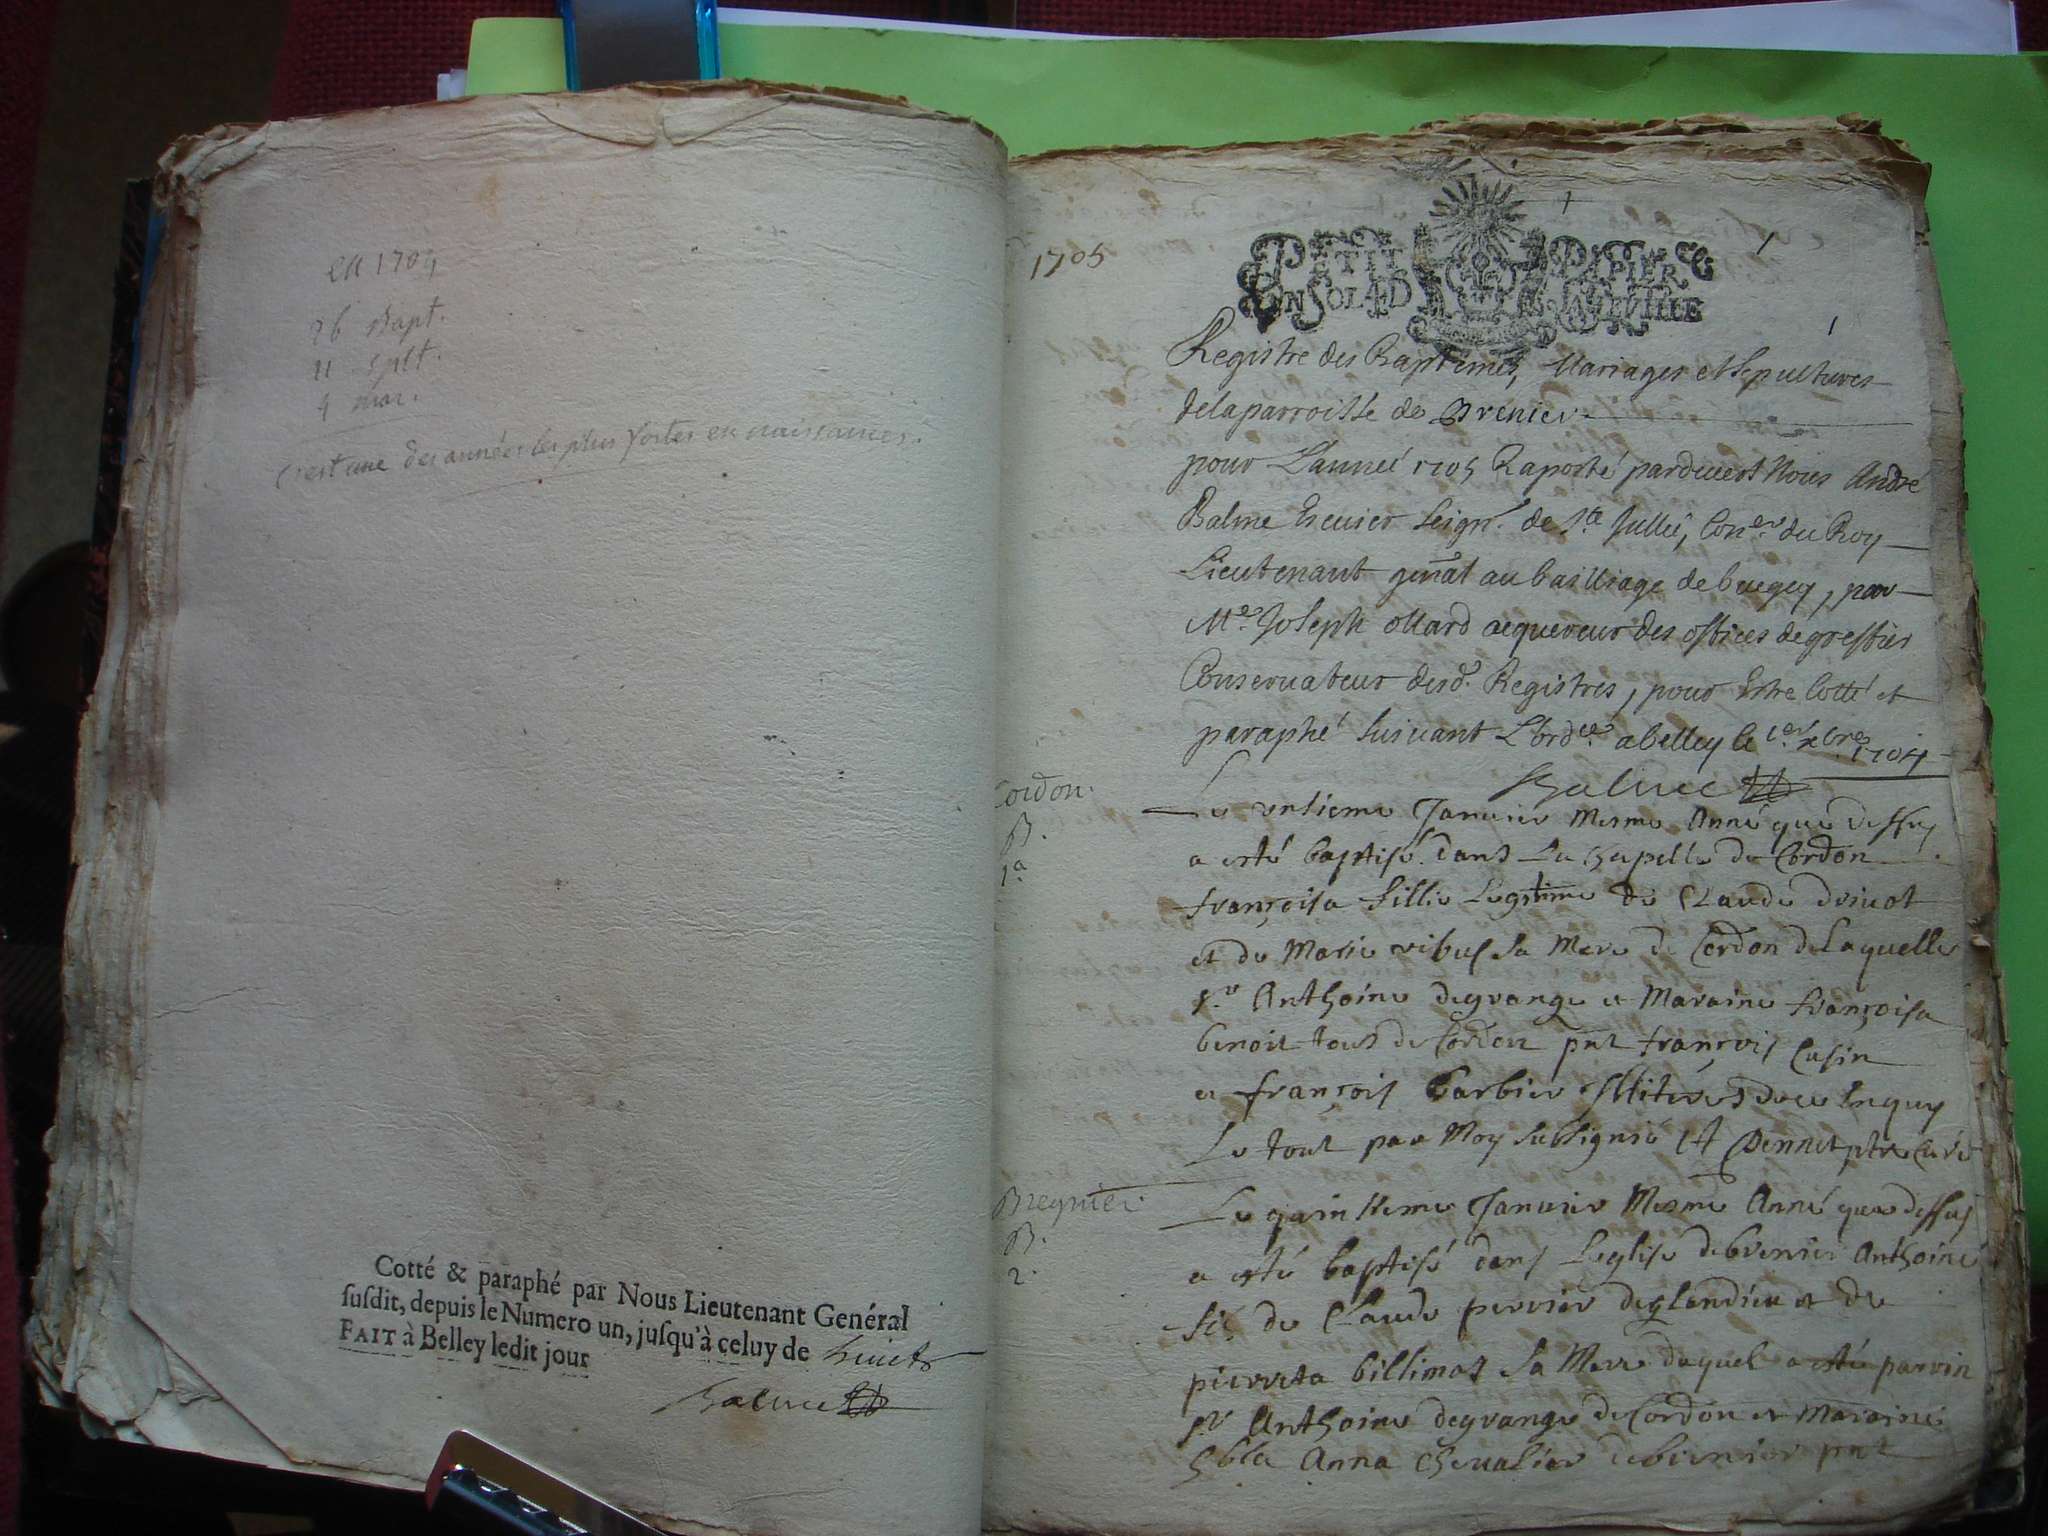 en 1705
26 Bapt.
11 Splt.
4 mar.
c'est une des années les plus fortes en naissances.
Cotté & paraphé par Nous Lieutenant Genéral
ſuſdit, depuis le Numero un, juſqu'à celuy de huict
FAIT à Belley ledit jour
Balme
1705
PETIT PAPIER
Registre des Baptemes, Mariages et Sepultures
de la parroisse de Brenier
pour L'anneé 1705 Raporté pardevert Nous André
Balme Escuier Seigr. de Ste Jullie, Coner. du Roy
Lieutenant gñal au bailliage de bugey, par
Me. Joseph ollard acquereur des offices de greffier
Conservateur desd. Registres, pour Estre Cotté et
paraphé Suivant L'ordce. a belley le 1er. xbre 1704
Balme
Cordon.
B.
1a
Le ontieme Janvier Mesme Anné que dessus
a esté baptisé dans La chapelle de Cordon
françoisa fillie Legitime de Claude drivot
et de Marie ribuf sa Mere de Cordon de Laquelle
Sr Anthoine degrange et Maraine françoisa
benoit tous de Cordon pnt françois Cusin
et françois barbier Illiterés de ce Enquis
Le tout par Moy subsigné Pernnet ptre Curé
Bregnier.
B.
2.
Le quinsieme Janvier Mesme Anné que dessus
a esté baptisé dans Leglise de brenier Anthoine
fils de Claude perrier deglandieu et de
pierreta billimaz sa Mere duquel a esté parrin
Sr Anthoine degrange de Cordon et Maraine
hble Anna Chevalier de brenier pnt